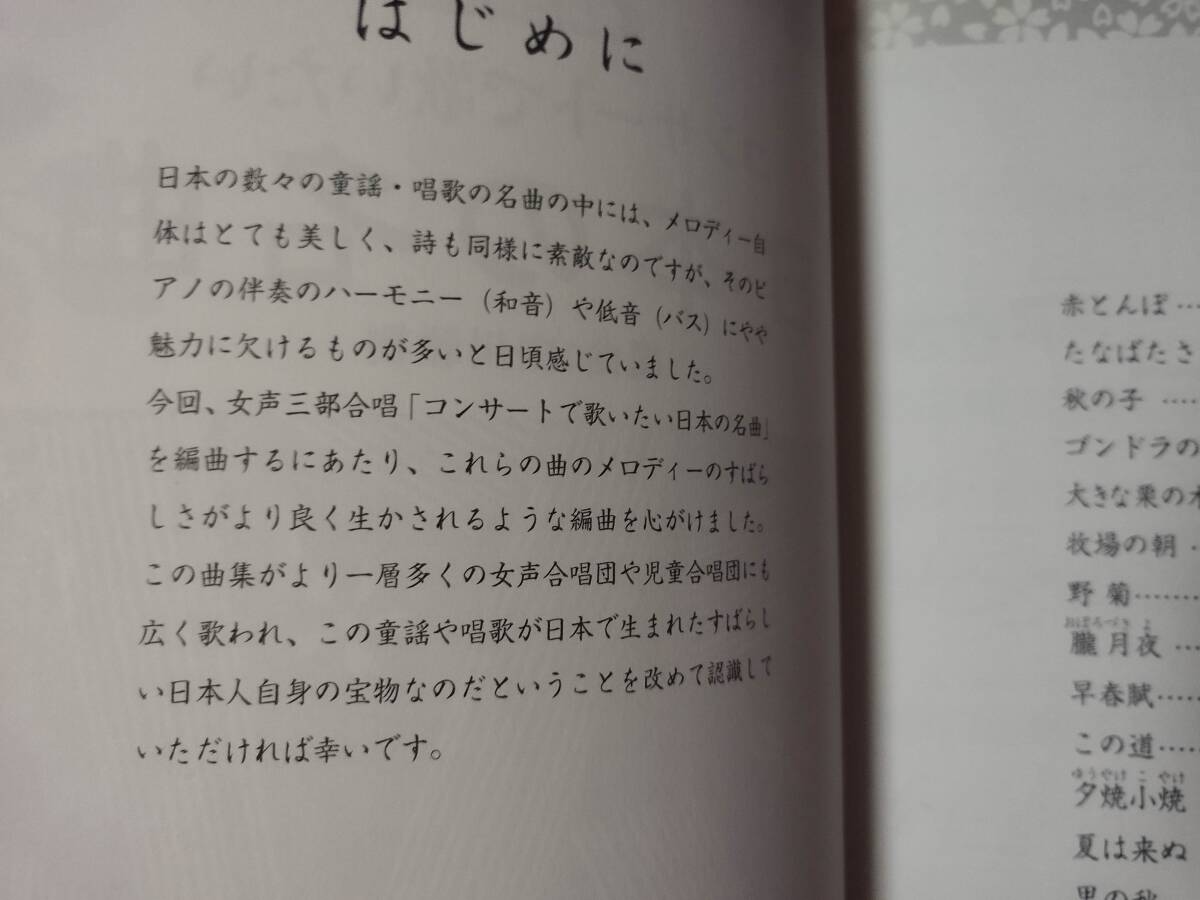 はじめに
日本の数々の童謡・唱歌の名曲の中には、メロディー自
体はとても美しく、詩も同様に素敵なのですが、そのピ
アノの伴奏のハーモニー（和音）や低音（バス）にやや
魅力に欠けるものが多いと日頃感じていました。
今回、女声三部合唱「コンサートで歌いたい日本の名曲」
を編曲するにあたり、これらの曲のメロディーのすばら
しさがより良く生かされるような編曲を心がけました。
この曲集がより一層多くの女声合唱団や児童合唱団にも
広く歌われ、この童謡や唱歌が日本で生まれたすばらし
い日本人自身の宝物なのだということを改めて認識して
いただければ幸いです。
赤とんぼ……
たなばたさ
秋の子……
ゴンドラの
大きな栗の木
牧場の朝…
野菊……
おぼろづきよ
朧月夜……
早春賦……
この道……
ゆうやけこやけ
夕焼小焼
夏は来ぬ
里の秋